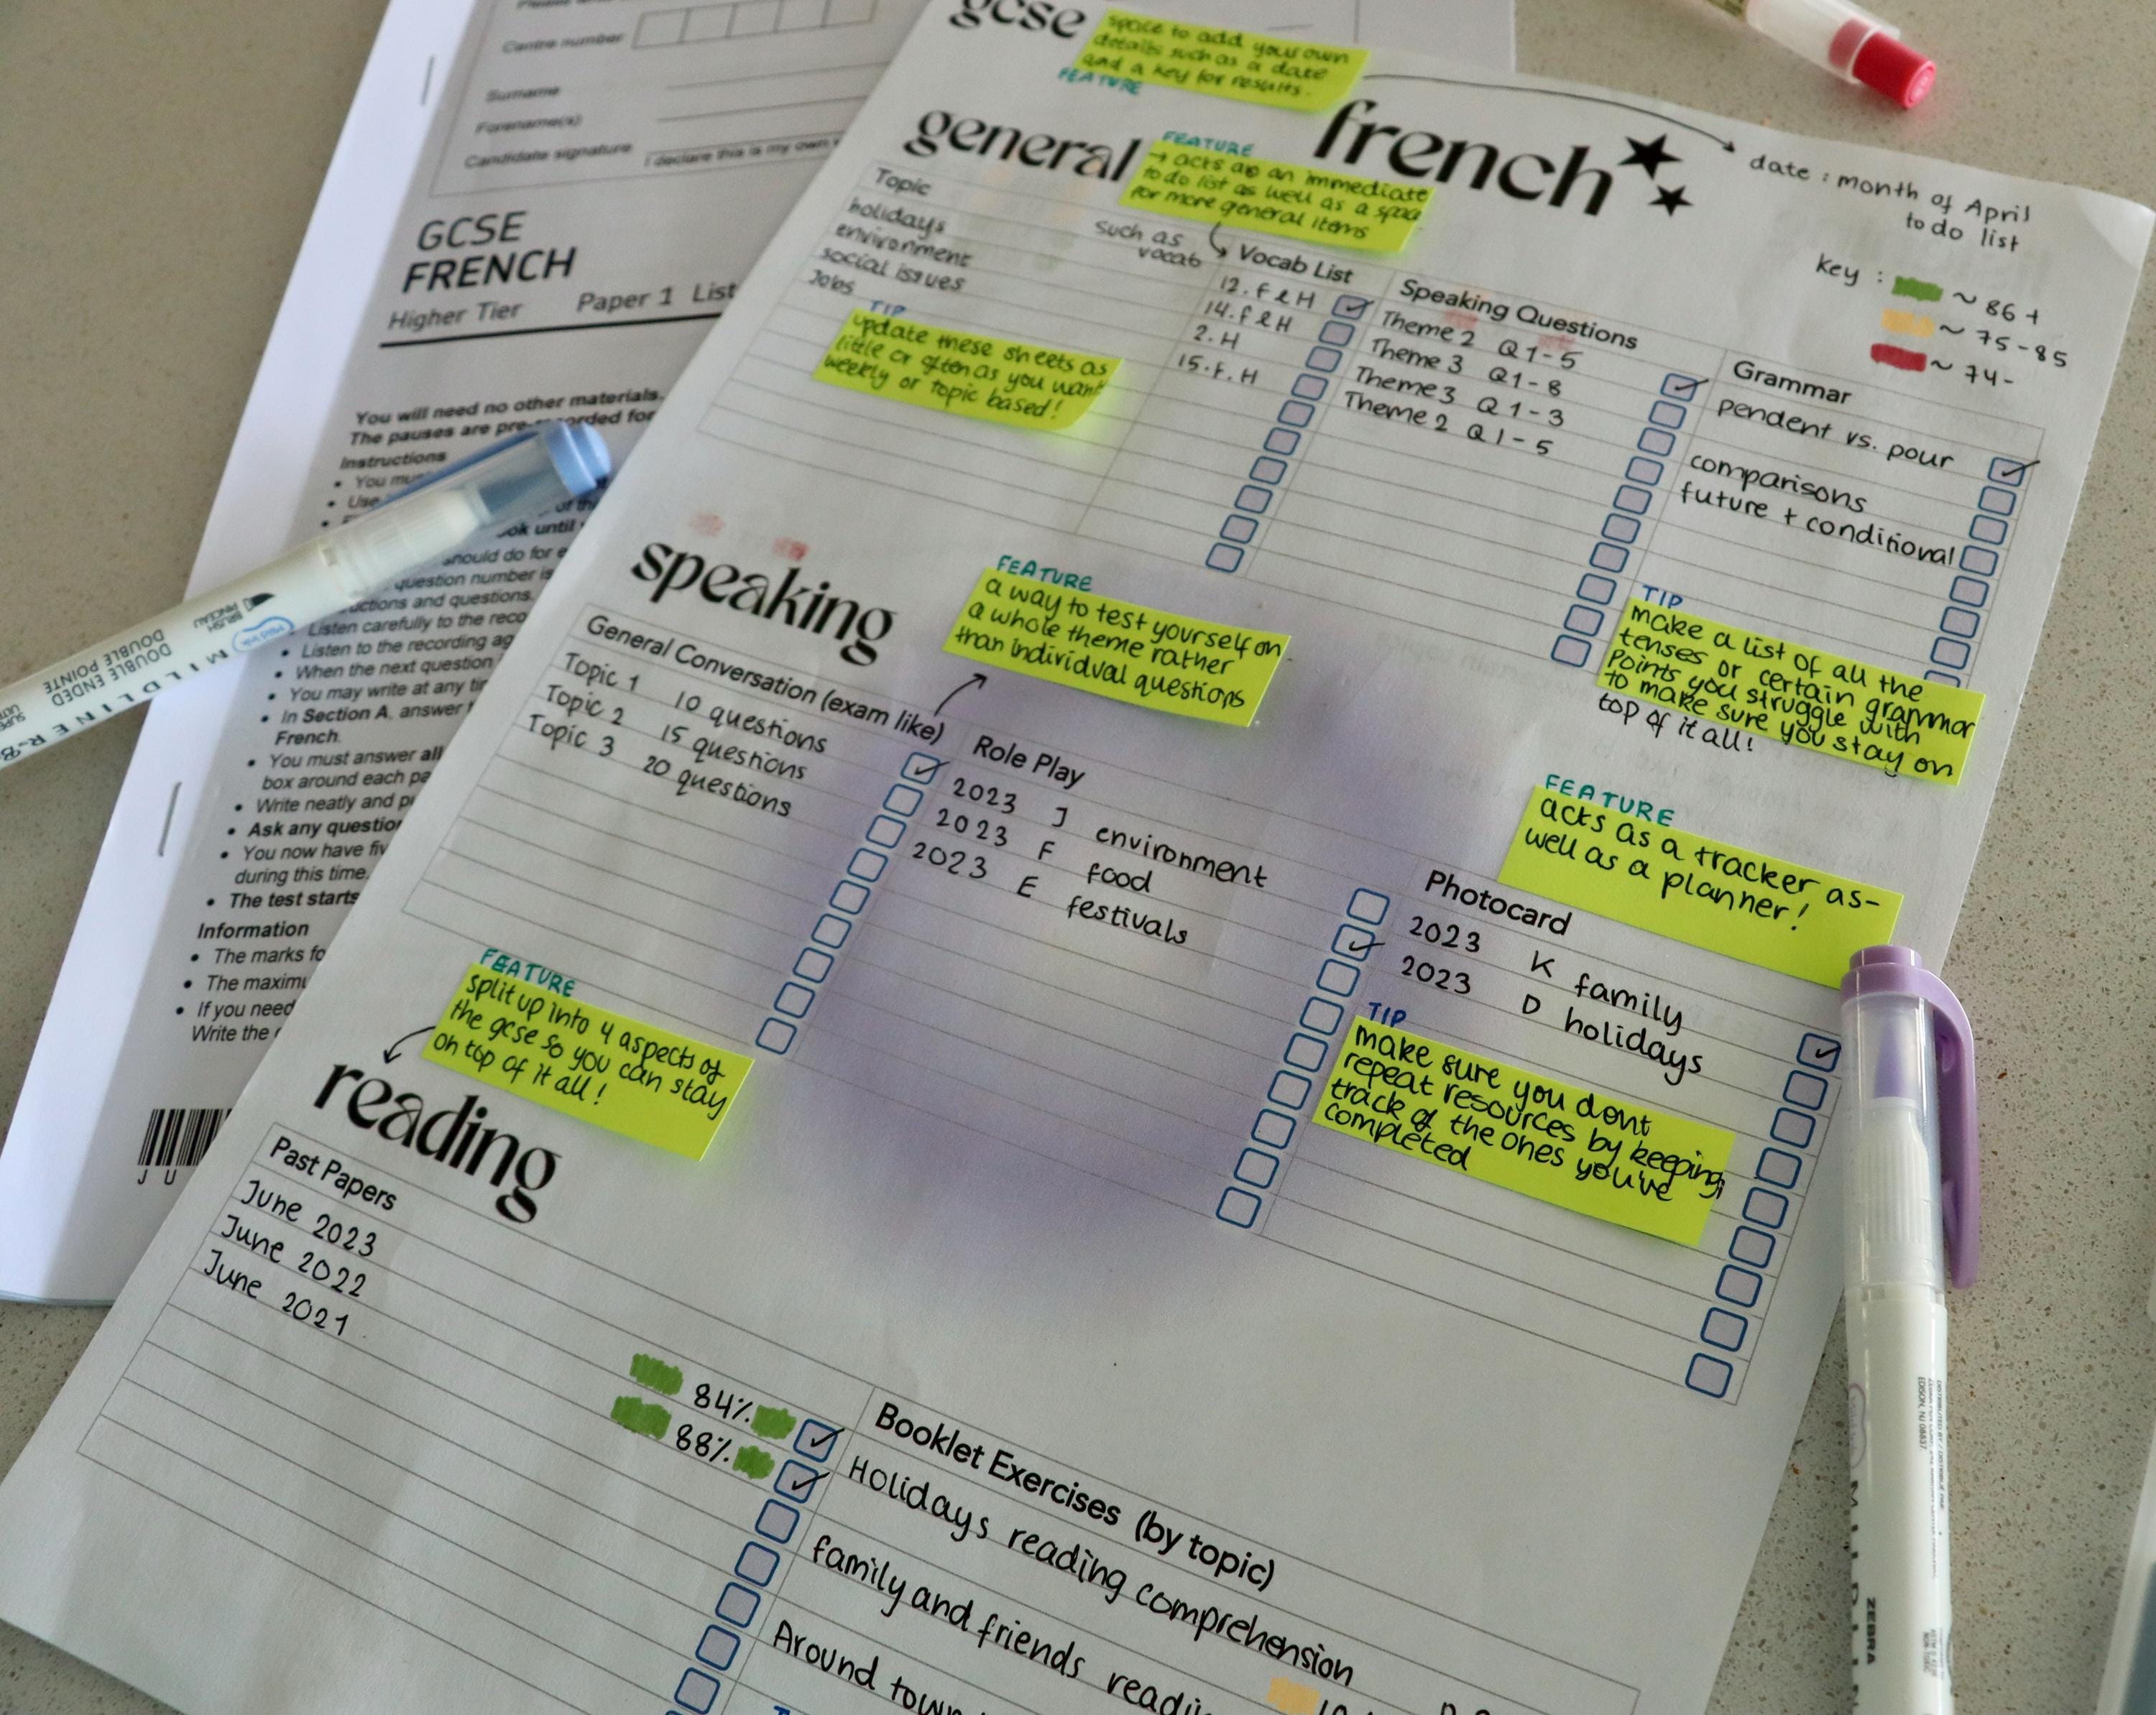 Centre number
Surname
Forename(s)
Candidate signature
I declare this is my own
GCSE
FRENCH
Higher Tier Paper 1 List
You will need no other materials.
The pauses are pre-recorded for
Instructions
• You mu
• Use
ok until
should do for e
question number is
uctions and questions.
Listen carefully to the reco
• Listen to the recording ag
• When the next question
• You may write at any tim
• In Section A, answer
French.
• You must answer all
box around each pa
• Write neatly and p
• Ask any question
• You now have fiv
during this time.
• The test starts
Information
• The marks fo
• The maximu
• If you need
Write the
J U
gcse
space to add your own
details such as a date
and a key for results.
FEATURE
french
date : month of April
to do list
key : ~ 86 +
~ 75-85
~ 74-
general
FEATURE
→ acts as an immediate
to do list as well as a space
for more general items
such as
vocab
Topic
holidays
environment
social issues
Jobs
TIP
update these sheets as
little or often as you want
weekly or topic based!
Vocab List
12. F & H
14. F & H
2. H
15. F. H
Speaking Questions
Theme 2 Q1-5
Theme 3 Q1-8
Theme 3 Q1-3
Theme 2 Q1-5
Grammar
pendent vs. pour
comparisons
future + conditional
TIP
make a list of all the
tenses or certain grammar
points you struggle with
to make sure you stay on
top of it all!
speaking
FEATURE
a way to test yourself on
a whole theme rather
than individual questions
General Conversation (exam like)
Topic 1 10 questions
Topic 2 15 questions
Topic 3 20 questions
Role Play
2023 J environment
2023 F food
2023 E festivals
FEATURE
acts as a tracker as-
well as a planner!
Photocard
2023 K family
2023 D holidays
TIP
make sure you dont
repeat resources by keeping
track of the ones you've
completed
FEATURE
split up into 4 aspects of
the gcse so you can stay
on top of it all!
reading
Past Papers
June 2023
June 2022
June 2021
84%
88%
Booklet Exercises (by topic)
Holidays reading comprehension
family and friends readin
Around town
MILDLINER
DOUBLE ENDED
DOUBLE POINTE
BRUSH
PINCEAU
EDISON, NJ 08837
MILDLI
ZEBRA